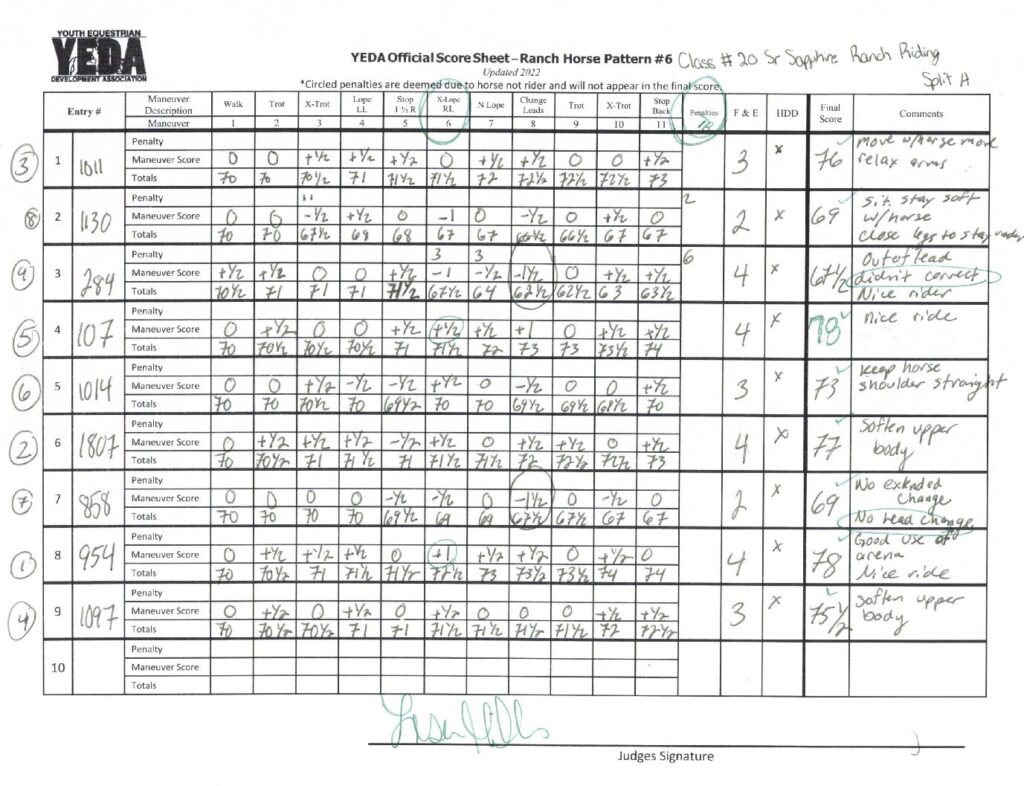 YOUTH EQUESTRIAN
YEDA
DEVELOPMENT ASSOCIATION
YEDA Official Score Sheet – Ranch Horse Pattern #6 Class # 20 Sr Sapphire Ranch Riding
Updated 2022 Split A
*Circled penalties are deemed due to horse not rider and will not appear in the final score.
Entry # Maneuver Description Walk Trot X-Trot Lope LL Stop 1 ½ R X-Lope RL N Lope Change Leads Trot X-Trot Stop Back Penalties F & E HDD Final Score Comments
Maneuver 1 2 3 4 5 6 7 8 9 10 11
3 1 1011 3 x 76 move w/horse more relax arms
Penalty
Maneuver Score 0 0 +½ +½ +½ 0 +½ +½ 0 0 +½
Totals 70 70 70½ 71 71½ 71½ 72 72½ 72½ 72½ 73
8 2 1130 2 x 69 Sit stay soft w/horse close legs to stay ready
Penalty 11 2
Maneuver Score 0 0 -½ +½ 0 -1 0 -½ 0 +½ 0
Totals 70 70 67½ 68 68 67 67 66½ 66½ 67 67
9 3 284 4 x 67½ Out of lead didn't correct Nice rider
Penalty 3 3 6
Maneuver Score +½ +½ 0 0 +½ -1 -½ -1½ 0 +½ +½
Totals 70½ 71 71 71 71½ 67½ 64 62½ 62½ 63 63½
5 4 107 4 x 78 nice ride
Penalty
Maneuver Score 0 +½ 0 0 +½ +½ +½ +1 0 +½ +½
Totals 70 70½ 70½ 70½ 71 71½ 72 73 73 73½ 74
6 5 1014 3 x 73 keep horse shoulder straight
Penalty
Maneuver Score 0 0 +½ -½ -½ +½ 0 -½ 0 0 +½
Totals 70 70 70½ 70 69½ 70 70 69½ 69½ 69½ 70
2 6 1807 4 x 77 Soften upper body
Penalty
Maneuver Score 0 +½ +½ +½ -½ +½ 0 +½ +½ 0 +½
Totals 70 70½ 71 71½ 71 71½ 71½ 72 72½ 72½ 73
7 7 858 2 x 69 No extended change No lead change
Penalty
Maneuver Score 0 0 0 0 -½ -½ 0 -1½ 0 -½ 0
Totals 70 70 70 70 69½ 69 69 67½ 67½ 67 67
1 8 954 4 x 78 Good use of arena Nice ride
Penalty
Maneuver Score 0 +½ +½ +½ 0 +1 +½ +½ 0 +½ 0
Totals 70 70½ 71 71½ 71½ 72½ 73 73½ 73½ 74 74
4 9 1097 3 x 75½ Soften upper body
Penalty
Maneuver Score 0 +½ 0 +½ 0 +½ 0 0 0 +½ +½
Totals 70 70½ 70½ 71 71 71½ 71½ 71½ 71½ 72 72½
10
Penalty
Maneuver Score
Totals
Judges Signature